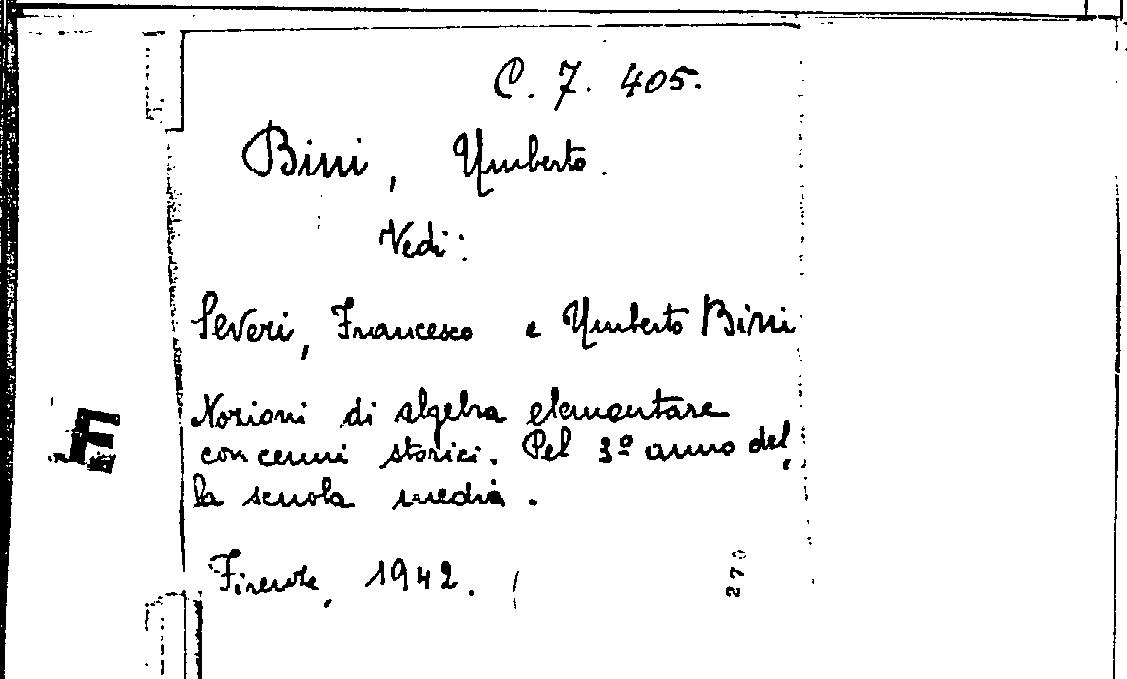 C. 7. 405.
Bini, Umberto.
Vedi:
Severi, Francesco e Umberto Bini
Nozioni di algebra elementare
con cenni storici. Pel 3º anno del,
la scuola media.
Firenze, 1942.
270
E